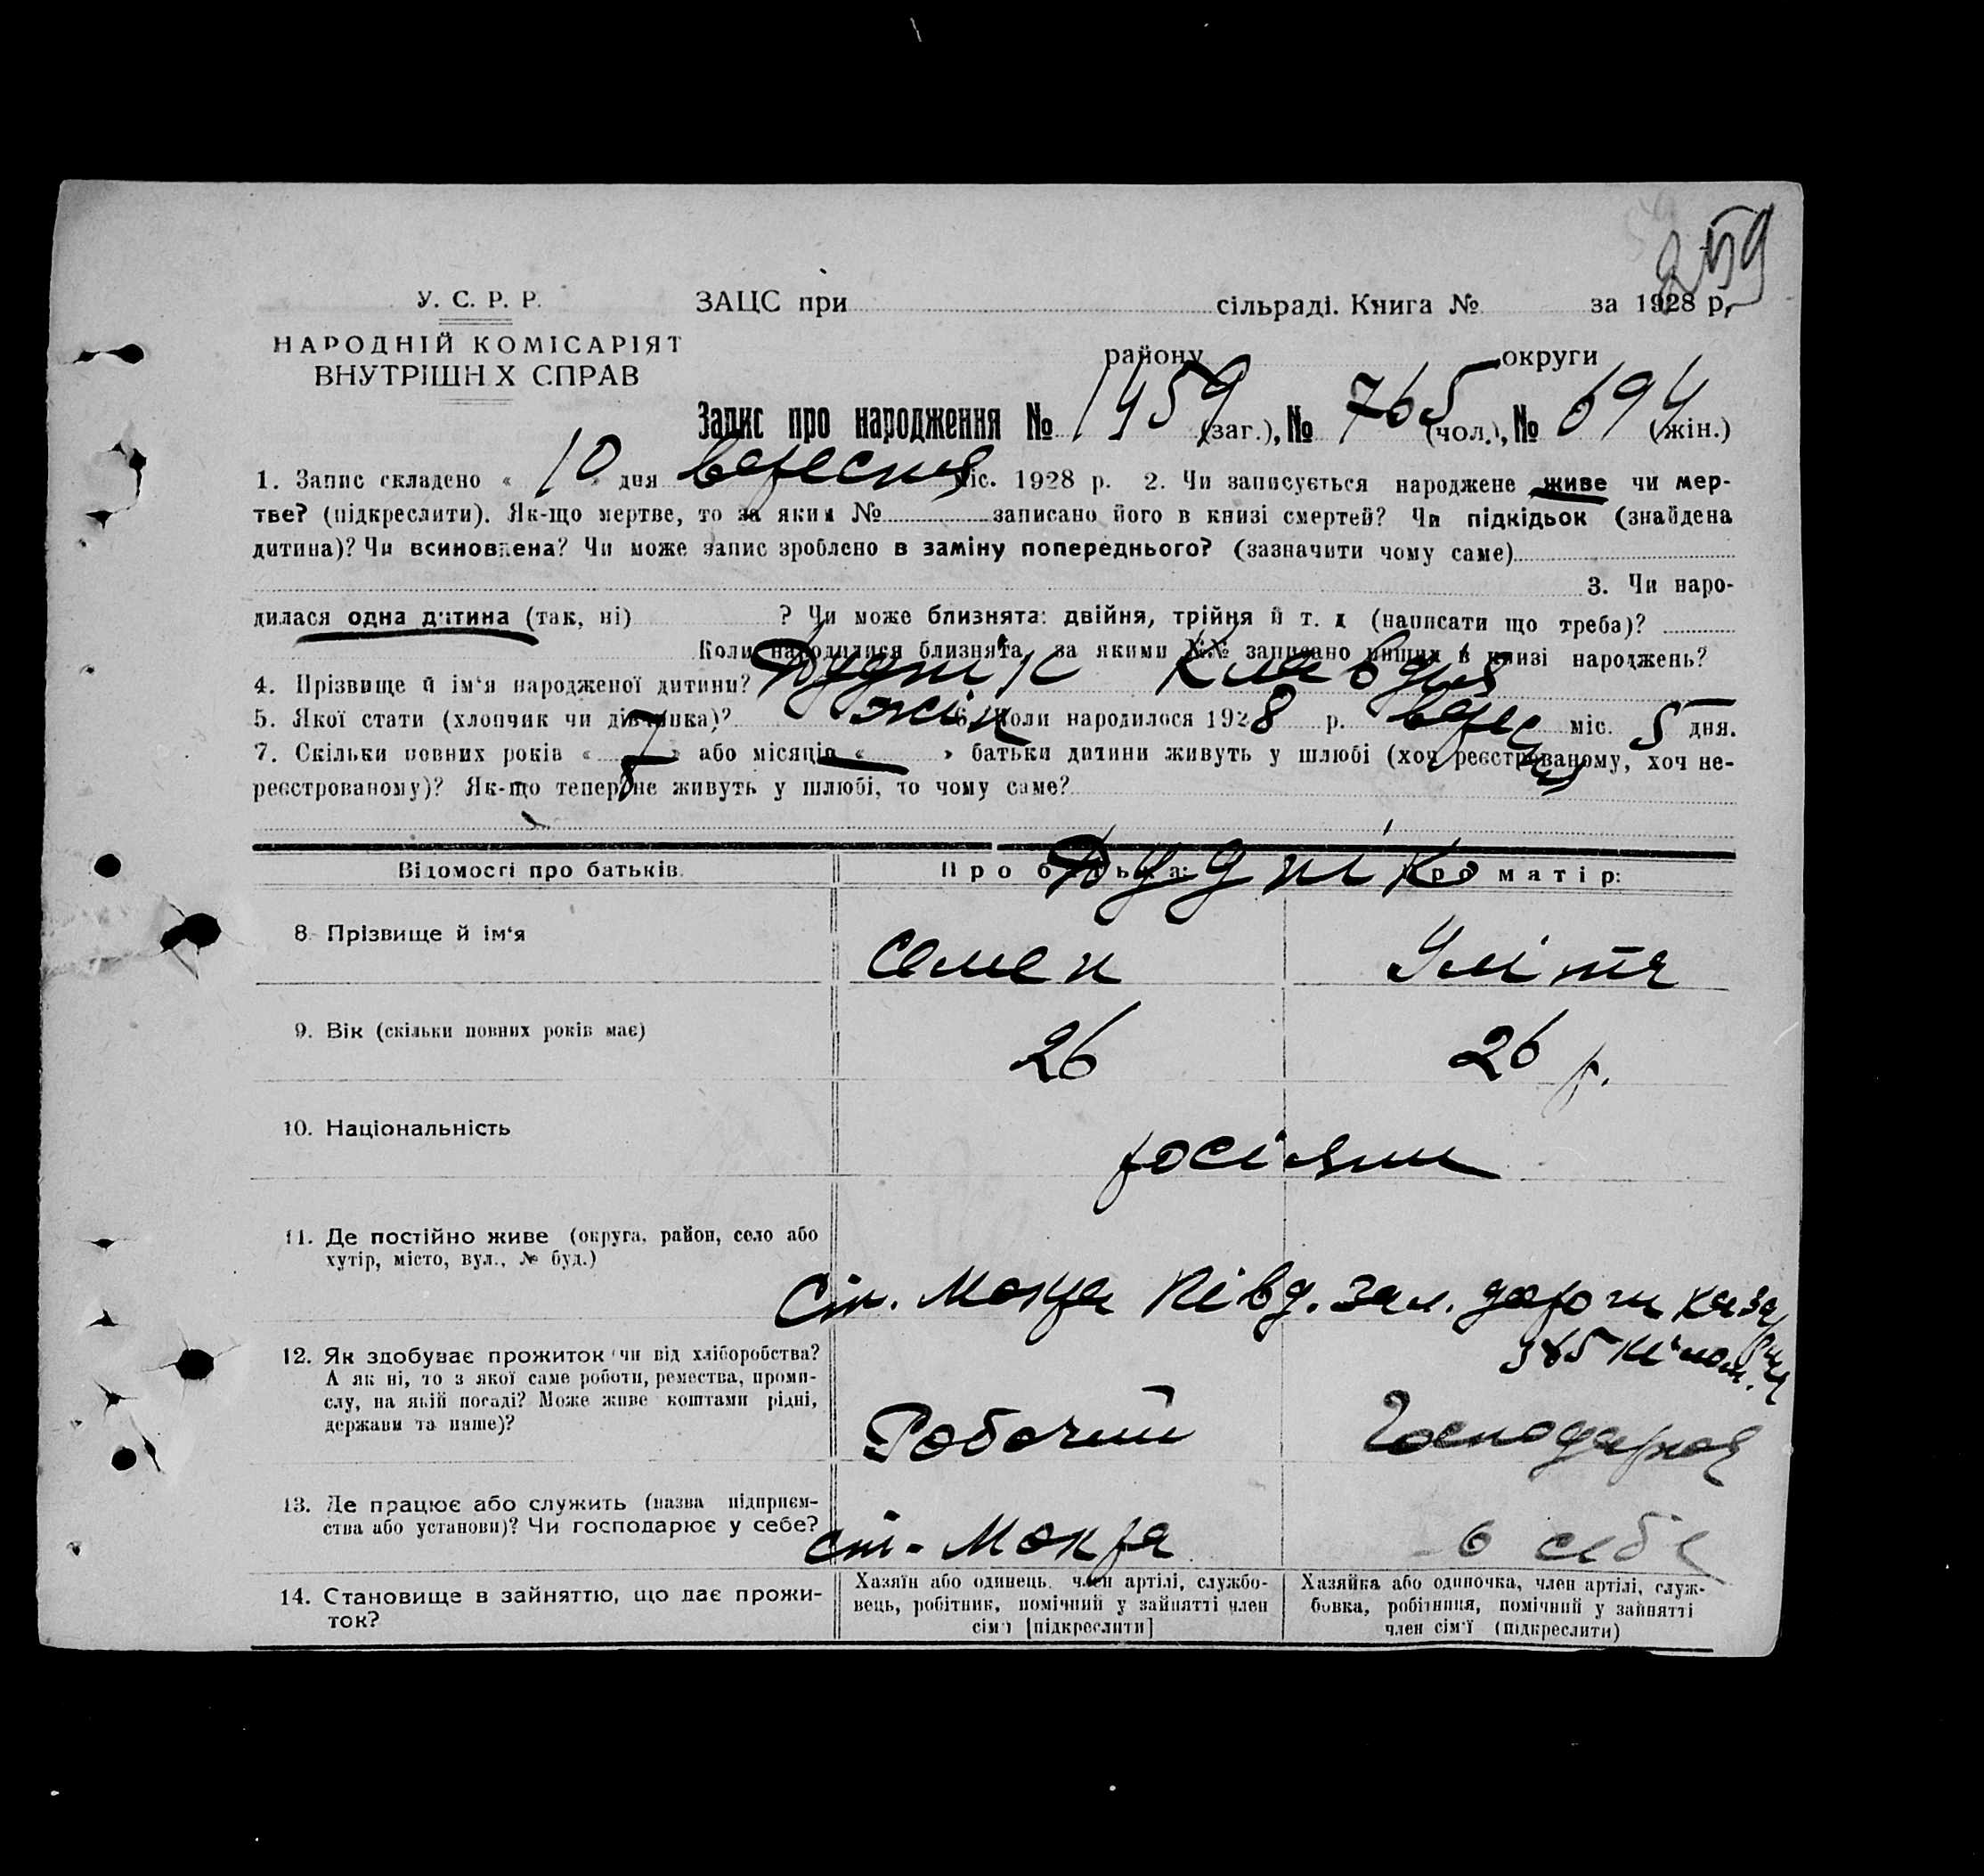 259
У. С. Р. Р.
НАРОДНІЙ КОМІСАРІЯТ
ВНУТРІШН Х СПРАВ
ЗАЦС при сільраді. Книга № за 1928 р.
району округи
Запис про народження № 1459 (заг.), № 765 (чол.), № 694 (жін.)
1. Запис складено « 10 » дня вересня міс. 1928 р. 2. Чи записується народжене живе чи мер-
тве? (підкреслити). Як-що мертве, то за яким № записано його в книзі смертей? Чи підкідьок (знайдена
дитина)? Чи всиновлена? Чи може запис зроблено в заміну попереднього? (зазначити чому саме)
3. Чи наро-
дилася одна дитина (так, ні) ? Чи може близнята: двійня, трійня й т. д (написати що треба)?
Коли народилися близнята, за якими №№ записано инших в книзі народжень?
4. Прізвище й ім‘я народженої дитини? Дуднік Клавдия
5. Якої стати (хлопчик чи дівчинка)? жін 6. Коли народилося 1928 р. вересня міс. 5 дня.
7. Скільки повних років « 7 » або місяців « » батьки дитини живуть у шлюбі (хоч реєстрованому, хоч не-
реєстрованому)? Як-що тепер не живуть у шлюбі, то чому саме?
Відомості про батьків. Про батька: Про матір:
Дуднік
8. Прізвище й ім‘я Семен
9. Вік (скільки повних років має) 26 26 р.
10. Національність росіяни
11. Де постійно живе (округа, район, село або
хутір, місто, вул., № буд.)
Ст. Мокра Півд. зал. дороги
12. Як здобуває прожиток чи від хліборобства?
А як ні, то з якої саме роботи, ремества, проми-
слу, на якій посаді? Може живе коштами рідні,
держави та инше)?
Робочий Господарка
13. Де працює або служить (назва підприєм-
ства або установи)? Чи господарює у себе?
ст. Мокра в себе
14. Становище в зайняттю, що дає прожи-
ток?
Хазяїн або одинець, член артілі, службо-
вець, робітник, помічний у зайнятті член
сім‘ї [підкреслити]
Хазяйка або одиночка, член артілі, служ-
бовка, робітниця, помічний у зайнятті
член сім‘ї (підкреслити)